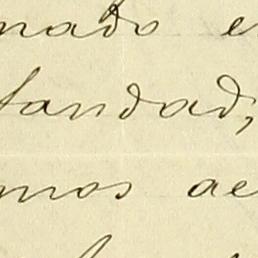 nado e
tandad,
mos ae